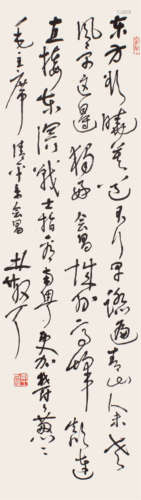 东方欲晓莫道君行早踏遍青山人未老
风景这边独好会昌城外高峰颠连
直接东溟战士指看南粤更加郁郁葱葱
毛主席清平乐会昌 林散耳